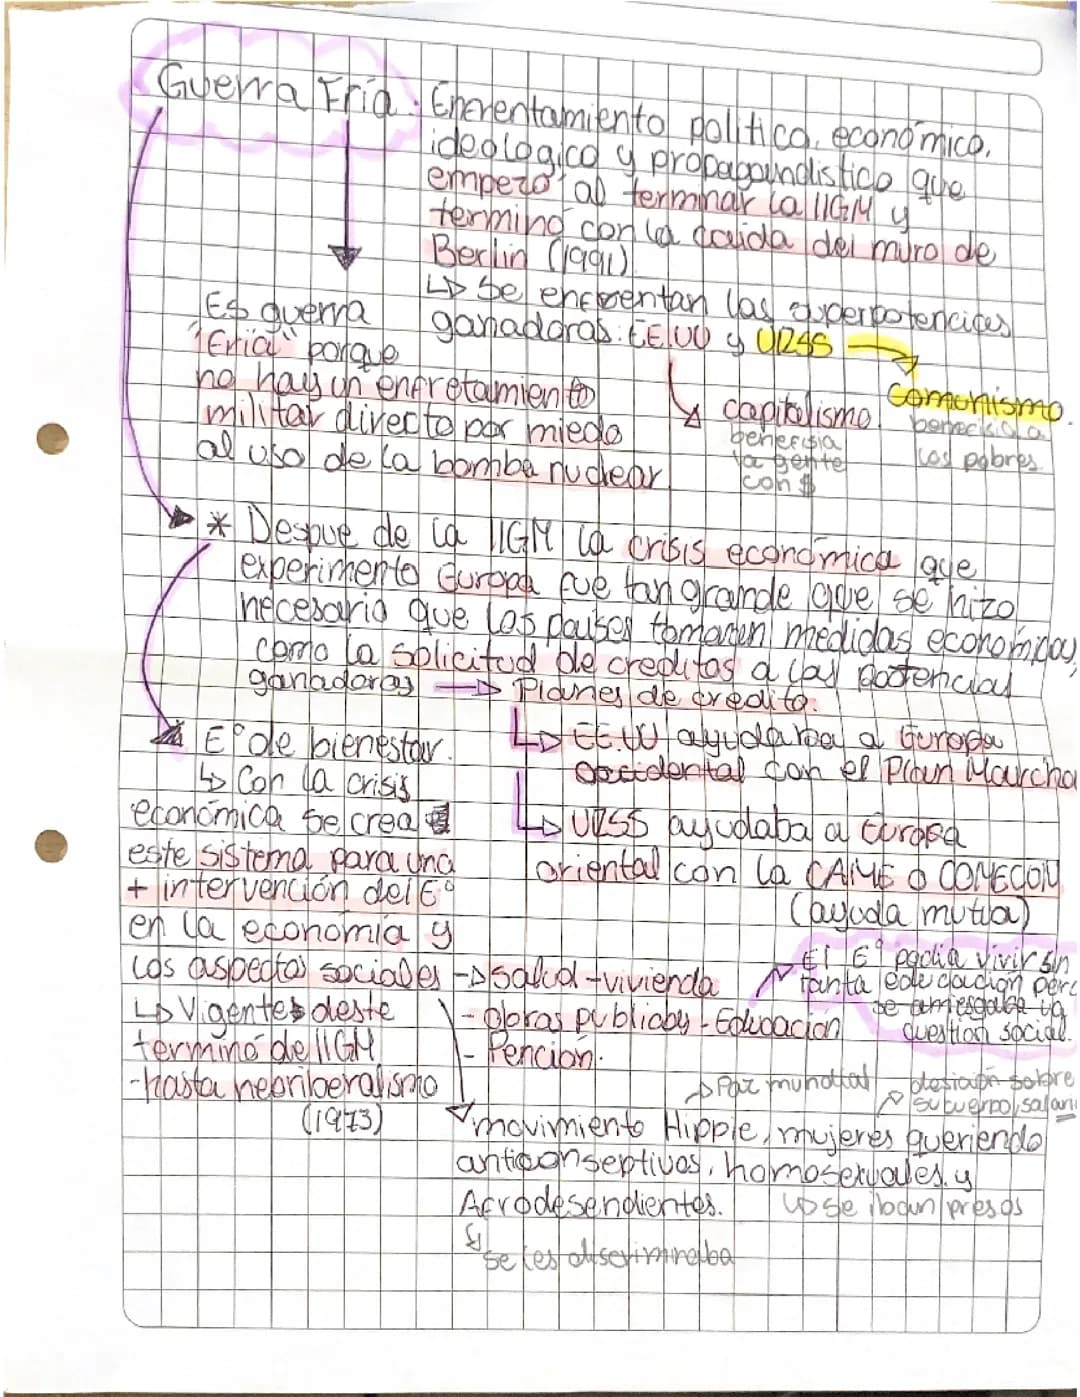 Guerra Fría: Enfrentamiento politico, económico,
ideologico y propagandistico que
empezó al terminar la IIGM y
terminó con la caida del muro de
Berlin (1991)
↳ Se enfrentan las superpotencias
ganadoras: EE.UU y URSS →
Es guerra
"Fria" porque
no hay un enfretamiento
militar directo por miedo
al uso de la bomba nuclear
capitalismo
beneficia
la gente
con $
Comunismo.
beneficia a
los pobres
* Despue de la IIGM la crisis económica que
experimento Europa fue tan grande que se hizo
necesario que los paises tomaran medidas economicas
como la solicitud de creditos a las potencias
ganadoras → Planes de credito.
↳ EE.UU ayudaba a Europa
Occidental con el Plan Marcha
↳ URSS ayudaba a Europa
oriental con la CAME o COMECON
(ayuda mutua)
E° de bienestar
↳ Con la crisis
económica se crea
este sistema para una
+ intervención del E°
en la economía y
los aspectos sociales → Salud - vivienda
- obras publicas - Educación
- Pención.
El E° podia vivir sin
tanta educación pero
se arriesgaba la
question social.
↳ Vigente deste
terminó de IIGM
- hasta neoriberalismo
(1973)
→ Paz mundial
desición sobre
su cuerpo, salari
movimiento Hippie, mujeres queriendo
anticonseptivos, homosexuales y
Afrodesendientes.
↳ se iban presos
↳ se les discriminaba